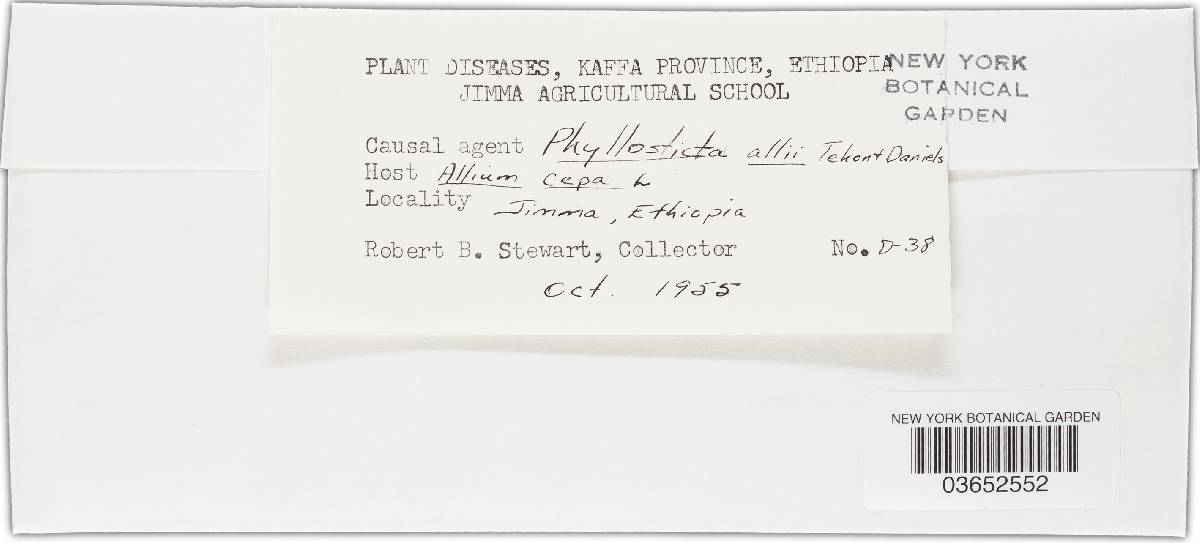 PLANT DISEASES, KAFFA PROVINCE, ETHIOPIA
JIMMA AGRICULTURAL SCHOOL
NEW YORK
BOTANICAL
GARDEN
Causal agent Phyllosticta allii Tehon + Daniels
Host Allium cepa L
Locality Jimma, Ethiopia
Robert B. Stewart, Collector No. D-38
Oct. 1955
NEW YORK BOTANICAL GARDEN
03652552